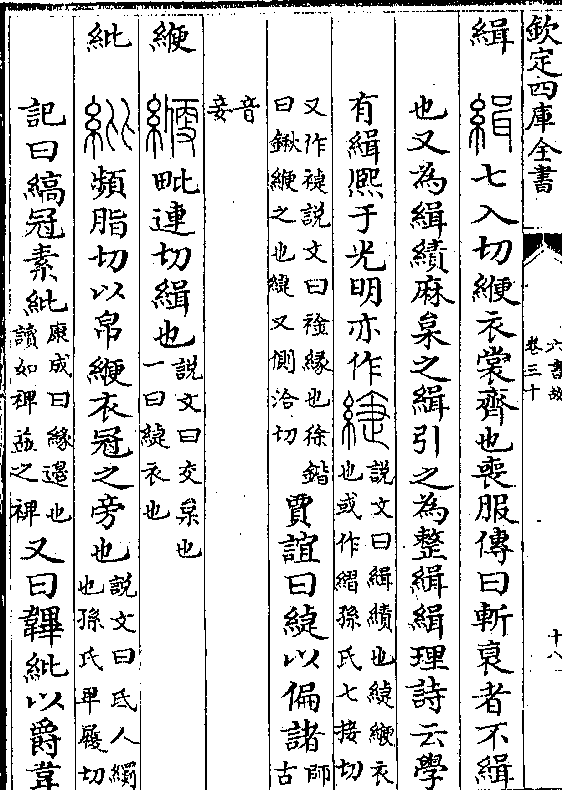 欽定四庫全書
六書故
卷三十
十八
緝 七入切緶衣裳齊也喪服傳曰斬衰者不緝
也又為緝績麻枲之緝引之為整緝緝理詩云學
有緝熙于光明亦作緁說文曰緝績也緁緶衣也或作孫氏七接切
又作說文曰緣也徐鍇曰鍬緶之也緁又側洽切賈誼曰緁以偏諸師古
音妾
緶 毗連切緝也說文曰交枲也一曰緁衣也
紕 頻脂切以帛緶衣冠之旁也說文曰氐人也孫氏卑履切
記曰縞冠素紕康成曰緣邊也讀如裨益之裨又曰韠紕以爵韋